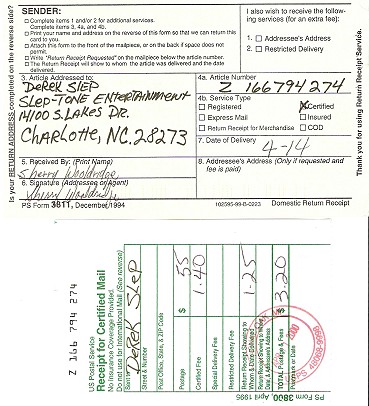 SENDER:
Complete items 1 and/or 2 for additional services.
Complete items 3, 4a, and 4b.
Print your name and address on the reverse of this form so that we can return this
card to you.
Attach this form to the front of the mailpiece, or on the back if space does not
permit.
Write "Return Receipt Requested" on the mailpiece below the article number.
The Return Receipt will show to whom the article was delivered and the date
delivered.
I also wish to receive the follow-
ing services (for an extra fee):
1. Addressee's Address
2. Restricted Delivery
3. Article Addressed to:
DEREK SLEP
SLEP-TONE ENTERTAINMENT
14100 S. LAKES DR.
CHARLOTTE, NC. 28273
4a. Article Number
Z 166 794 274
4b. Service Type
Registered Certified
Express Mail Insured
Return Receipt for Merchandise COD
7. Date of Delivery
4-14
5. Received By: (Print Name)
Sherry Wooldridge
6. Signature (Addressee or Agent)
8. Addressee's Address (Only if requested and
fee is paid)
PS Form 3811, December 1994 102595-99-B-0223 Domestic Return Receipt
Is your RETURN ADDRESS completed on the reverse side?
Thank you for using Return Receipt Service.
Z 166 794 274
US Postal Service
Receipt for Certified Mail
No Insurance Coverage Provided.
Do not use for International Mail (See reverse)
Sent to
DEREK SLEP
Street & Number
Post Office, State, & ZIP Code
Postage $ .55
Certified Fee 1.40
Special Delivery Fee
Restricted Delivery Fee
Return Receipt Showing to
Whom & Date Delivered 1.25
Return Receipt Showing to Whom,
Date, & Addressee's Address
TOTAL Postage & Fees $ 3.20
Postmark or Date
PS Form 3800, April 1995